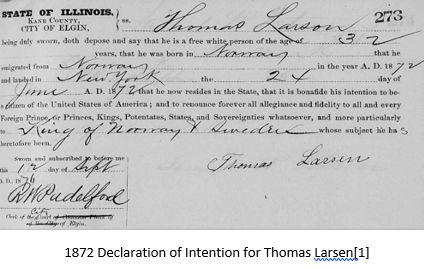 STATE OF ILLINOIS, Thomas Larson 273
KANE COUNTY, ss.
CITY OF ELGIN,
being duly sworn, doth depose and say that he is a free white person of the age of 32
years, that he was born in Norway that he
emigrated from Norway in the year A. D. 1872
and landed in New York the 24 day of
June A. D. 1872 that he now resides in the State, that it is bonafide his intention to be-
a citizen of the United States of America; and to renounce forever all allegiance and fidelity to all and every
Foreign Prince or Princes, Kings, Potentates, States, and Sovereignties whatsoever, and more particularly
to King of Norway & Sweden whose subject he has
heretofore been.
Sworn and subscribed to before me
this 12 day of Sept Thomas Larsen
A. D. 1876
R W Padelford
City
Clerk of the
of Elgin.
1872 Declaration of Intention for Thomas Larsen[1]